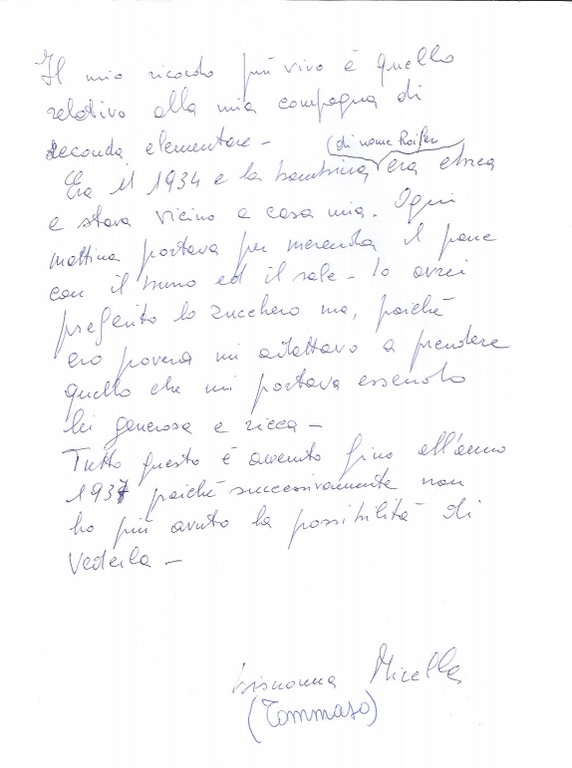 Il mio ricordo più vivo è quello
relativo alla mia compagna di
seconda elementare -
(di nome Roifer)
Era il 1934 e la bambina era ebrea
e stava vicino a casa mia. Ogni
mattina portava per merenda il pane
con il burro ed il sale - Io avrei
preferito lo zucchero ma, poiché
ero povera mi adattavo a prendere
quello che mi portava essendo
lei generosa e ricca -
Tutto questo è avvenuto fino all'anno
1937 poiché successivamente non
ho più avuto la possibilità di
vederla -
bisnonna Mirella
(Tommaso)